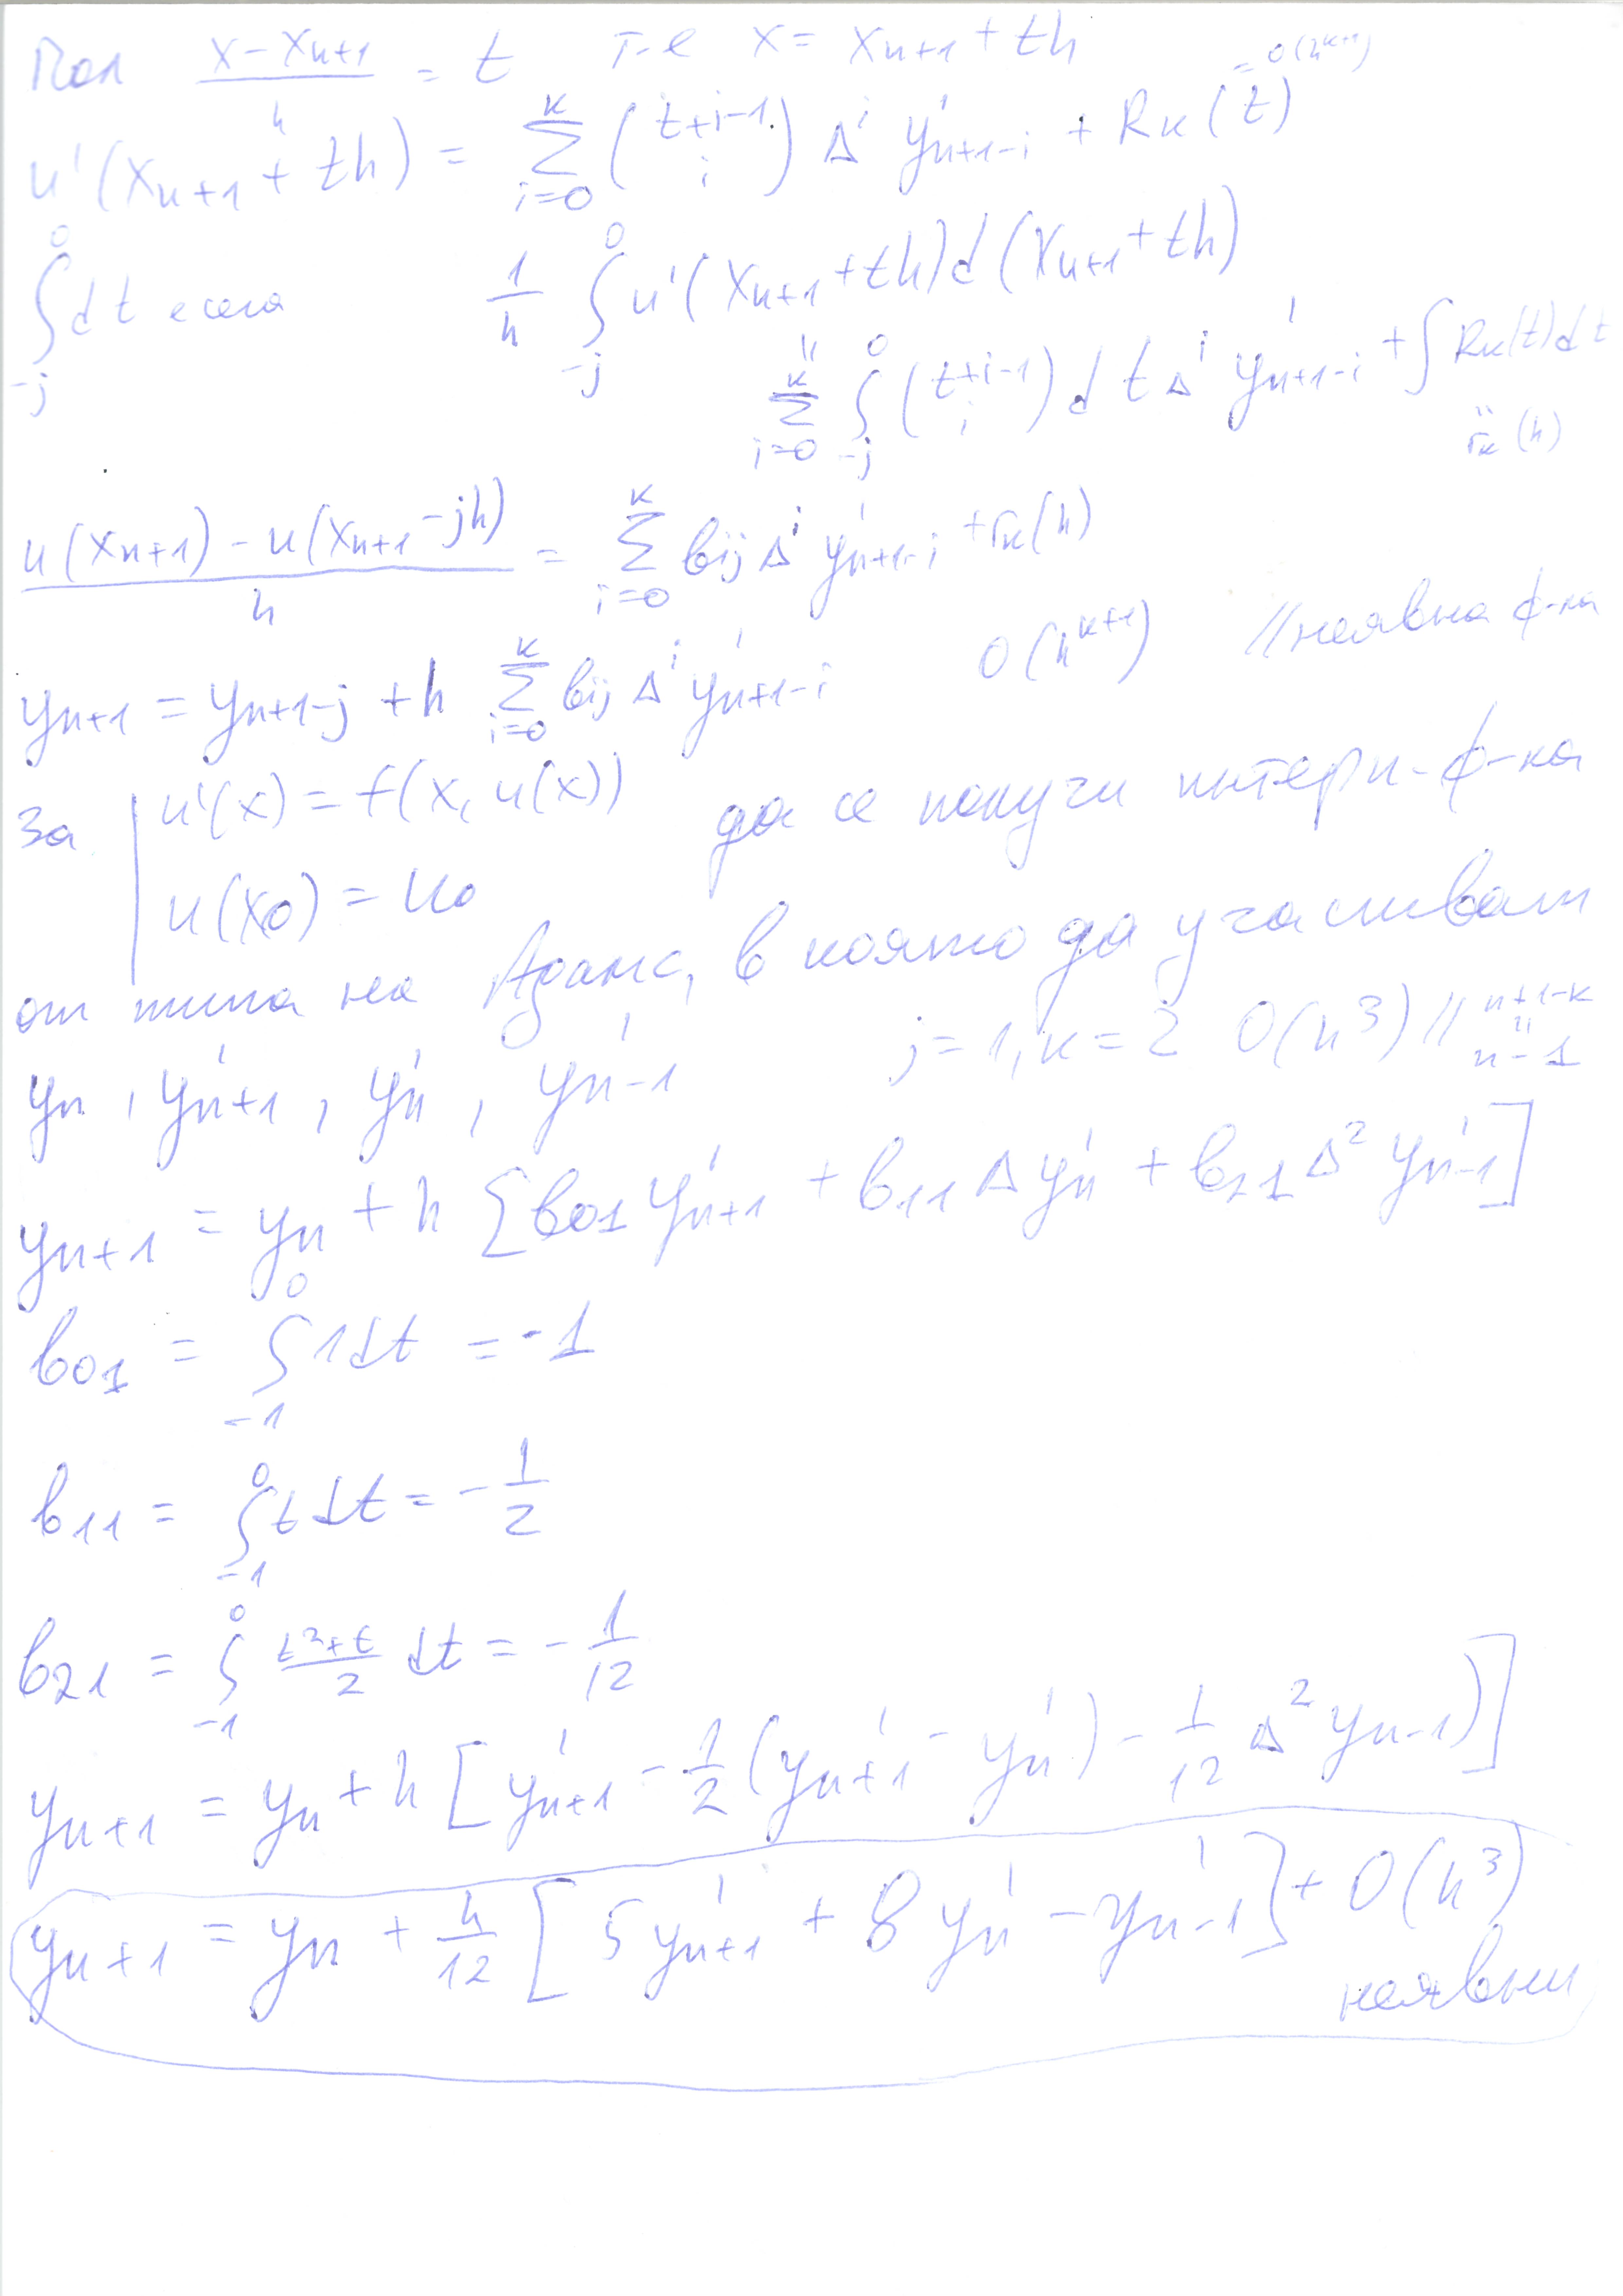 Пол (x - x_{n+1})/h = t т-е x = x_{n+1} + th
u'(x_{n+1} + th) = \sum_{i=0}^{k} \binom{t+i-1}{i} Δ^i y'_{n+1-i} + R_k(t) = O(h^{k+1})
\int_{-j}^{0} dt и сега 1/h \int_{-j}^{0} u'(x_{n+1} + th) d(x_{n+1} + th)
= \sum_{i=0}^{k} \int_{-j}^{0} \binom{t+i-1}{i} dt Δ^i y'_{n+1-i} + \int R_k(t) dt
= r_k(h)
(u(x_{n+1}) - u(x_{n+1} - jh))/h = \sum_{i=0}^{k} b_{ij} Δ^i y'_{n+1-i} + r_k(h)
y_{n+1} = y_{n+1-j} + h \sum_{i=0}^{k} b_{ij} Δ^i y'_{n+1-i} O(h^{k+1}) // неявна ф-ка
За | u'(x) = f(x, u(x)) да се получи интерп-ф-ка
| u(x_0) = u_0
от типа на Адамс, в която да участват
y_n, y'_{n+1}, y'_n, y'_{n-1} j = 1, k = 2 O(h^3) // n+1-k = n-1
y_{n+1} = y_n + h [b_{01} y'_{n+1} + b_{11} Δ y'_n + b_{21} Δ^2 y'_{n-1}]
b_{01} = \int_{-1}^{0} 1 dt = -1
b_{11} = \int_{-1}^{0} t dt = -1/2
b_{21} = \int_{-1}^{0} (t^2+t)/2 dt = -1/12
y_{n+1} = y_n + h [y'_{n+1} - 1/2 (y'_{n+1} - y'_n) - 1/12 Δ^2 y_{n-1})]
y_{n+1} = y_n + h/12 [5 y'_{n+1} + 8 y'_n - y'_{n-1}] + O(h^3)
неявни